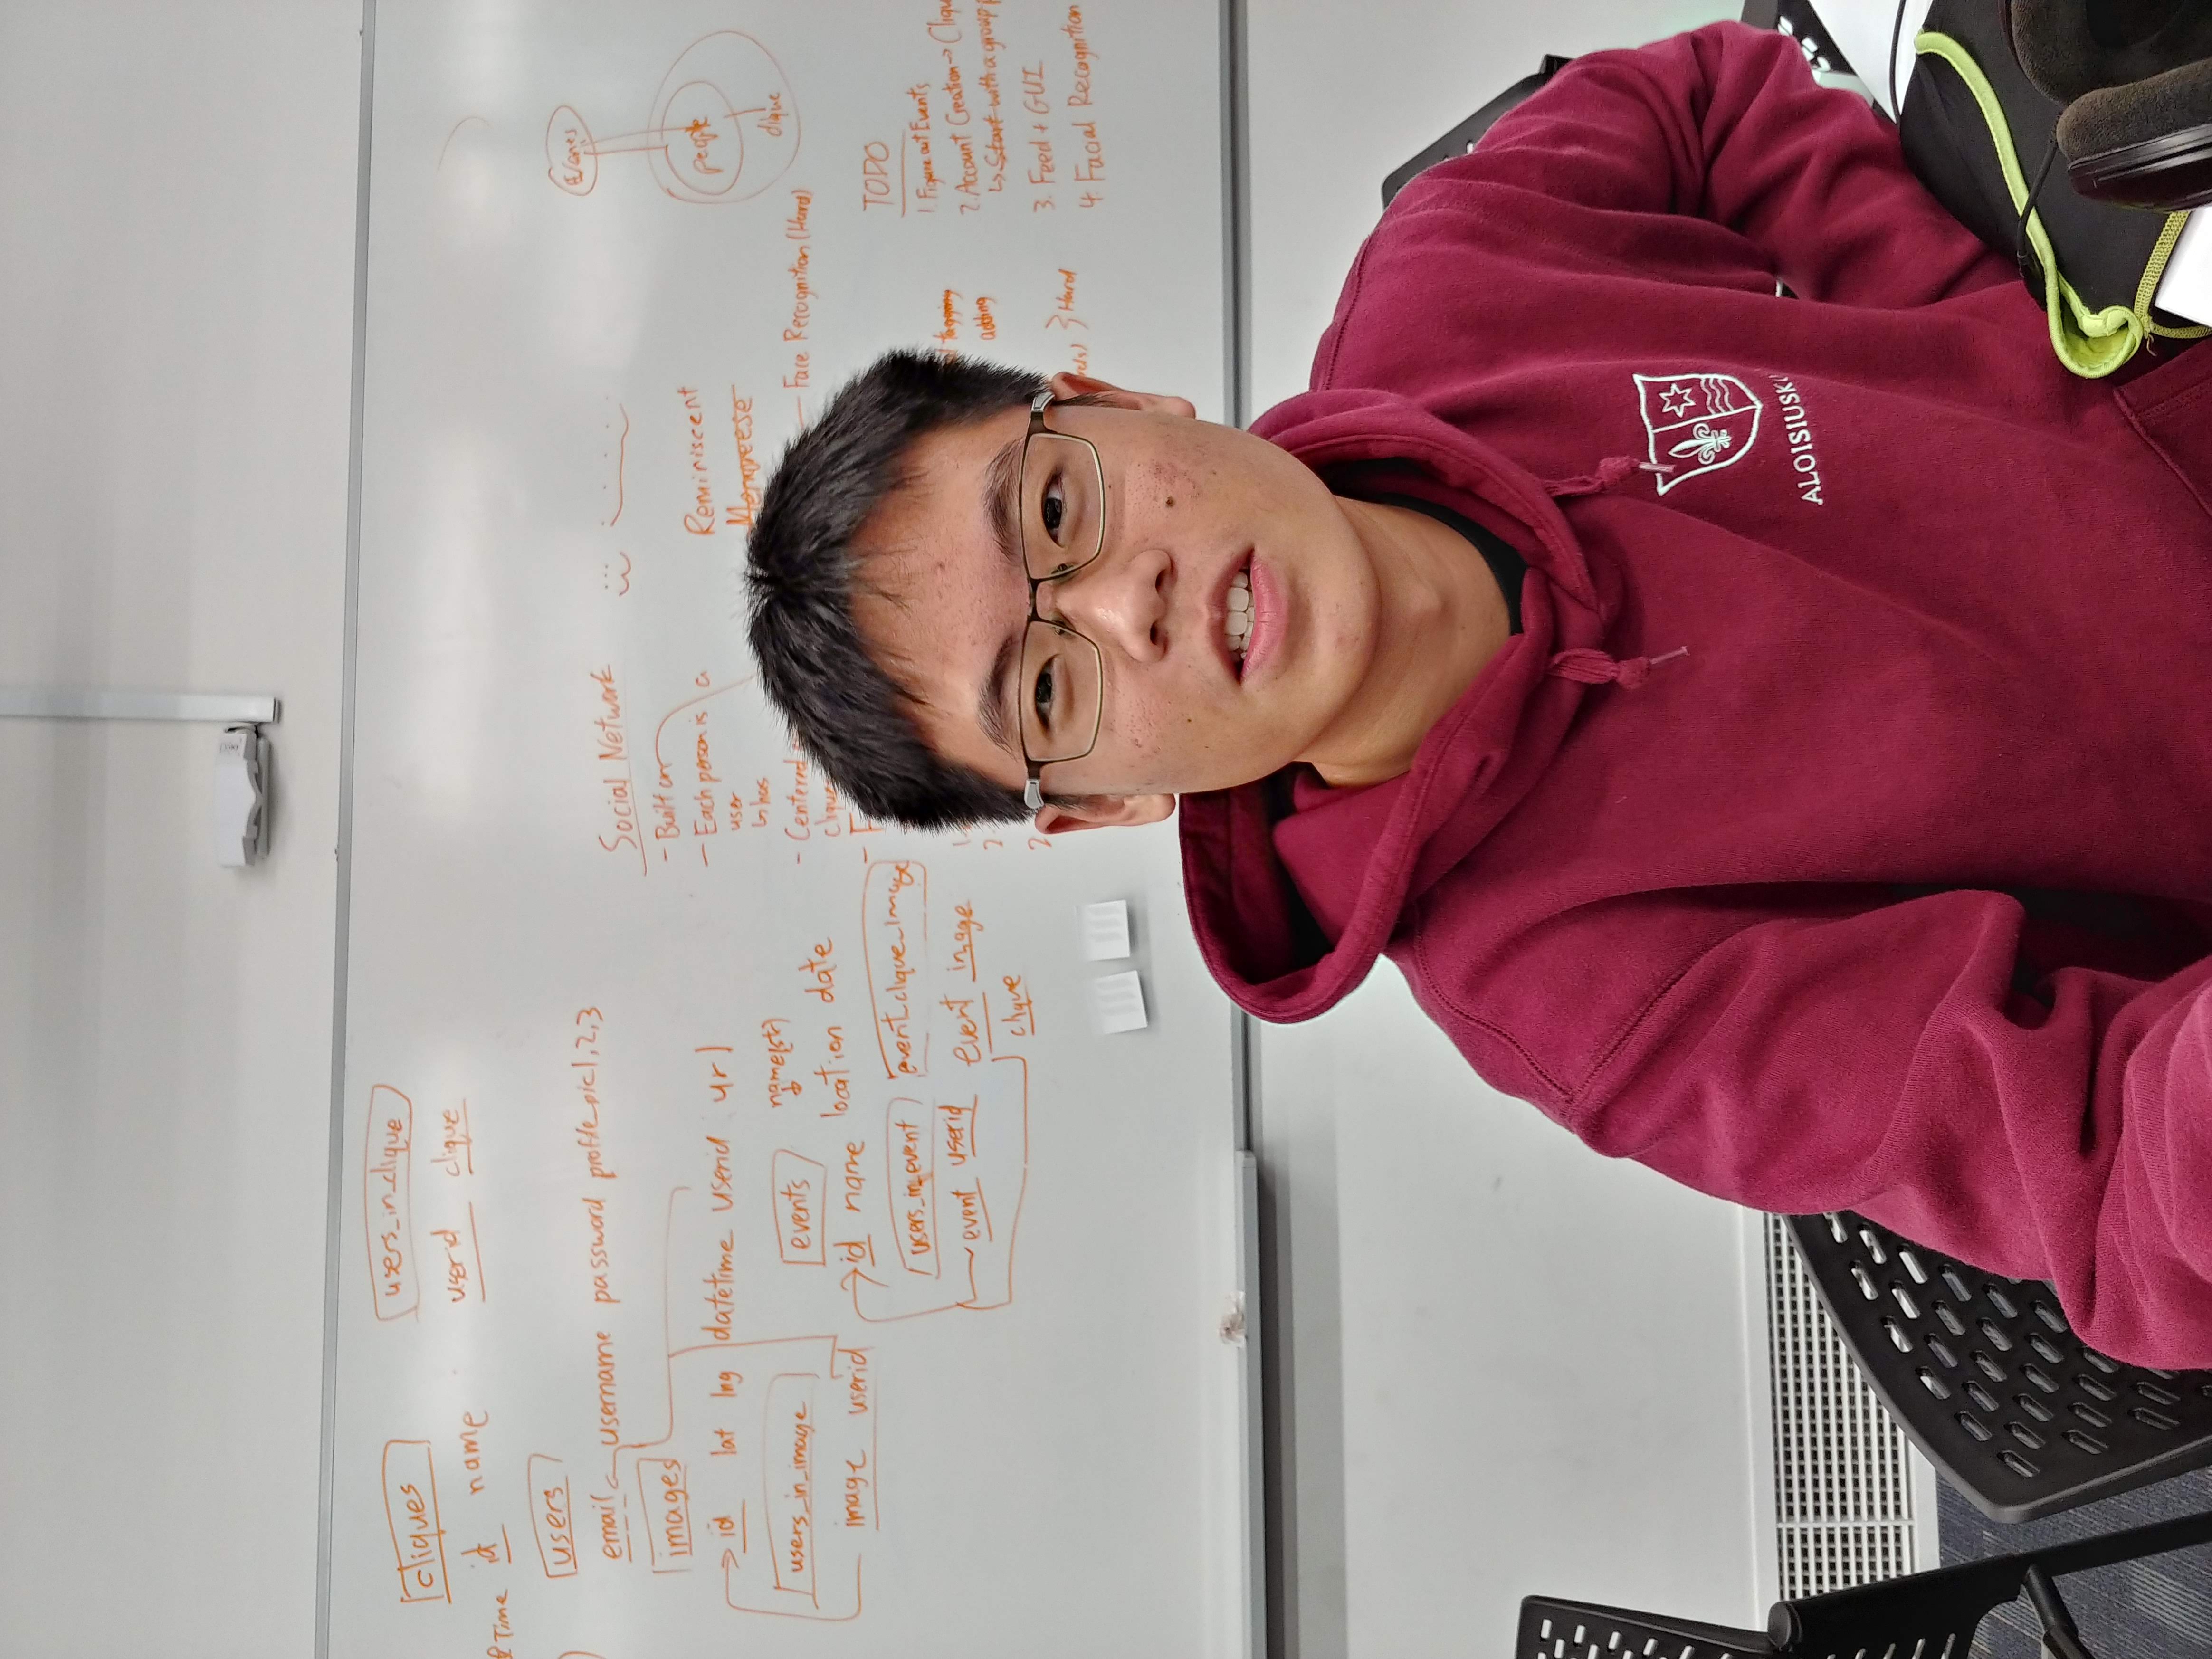 cliques
users_in_clique
Time id name
userid clique
users
email username password profile_pic1,2,3
images
id lat lng datetime userid url
users_in_image
image userid
events
name(str)
id name location date
users_in_event
event_clique_image
event userid
event image
clique
Social Network
- Built on
- Each person is a
user
↳ has
- Centered
- F
1
2
2
Reminiscent
Face Recognition (Hard)
tagging
adding
} Hard
people
clique
TODO
1. Figure out Events
2. Account Creation → Cliqu
↳ Start with a group p
3. Feed + GUI
4. Facial Recognition
ALOISIUSK